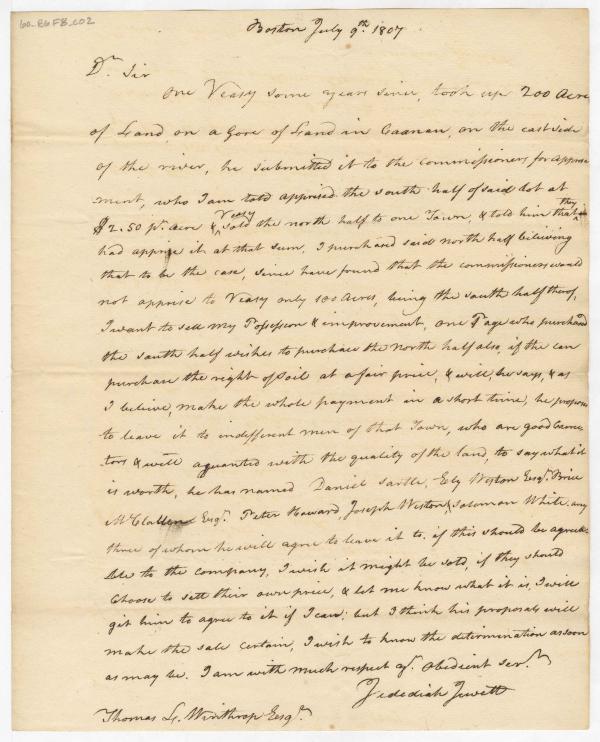 60-B6F8-002
Boston July 9th. 1807
Dr. Sir
One Veasy some years since, took up 200 Acres
of Land, on a Gore of Land in Caanan, on the east side
of the river, he submitted it to the commissioners for apprise
ment, who I am told apprised the south half of said lot at
$2.50 pr. Acre & Veasy sold the north half to one Town, & told him that they
had apprise it at that sum. I purchased said north half believing
that to be the case, since have found that the commissioners would
not apprise to Veasy only 100 Acres, being the south half therof,
I want to sell my Possession & improvement, one Page who purchased
the south half wishes to purchase the north half also, if the can
purchase the right of soil at a fair price, & will, he says, & as
I believe, make the whole payment in a short time, he proposes
to leave it to indifferent men of that Town, who are good
& will aquanted with the quality of the land, to say what it
is worth, he has named Daniel Eli Weston Esqr.
McClallen Esqr. Peter Haward, Joseph Weston & Solomon White any
three of whom he will agree to leave it to. if this should be agreea
ble to the company, I wish it might be sold, if they should
Choose to sett their own price, & let me know what it is, I will
git him to agree to it if I can; but I think his proposals will
make the sale certain, I wish to know the determination as soon
as may be. I am with much respect yr. obedient servt.
Jedediah Jewett
Thomas L. Winthrop Esqr.